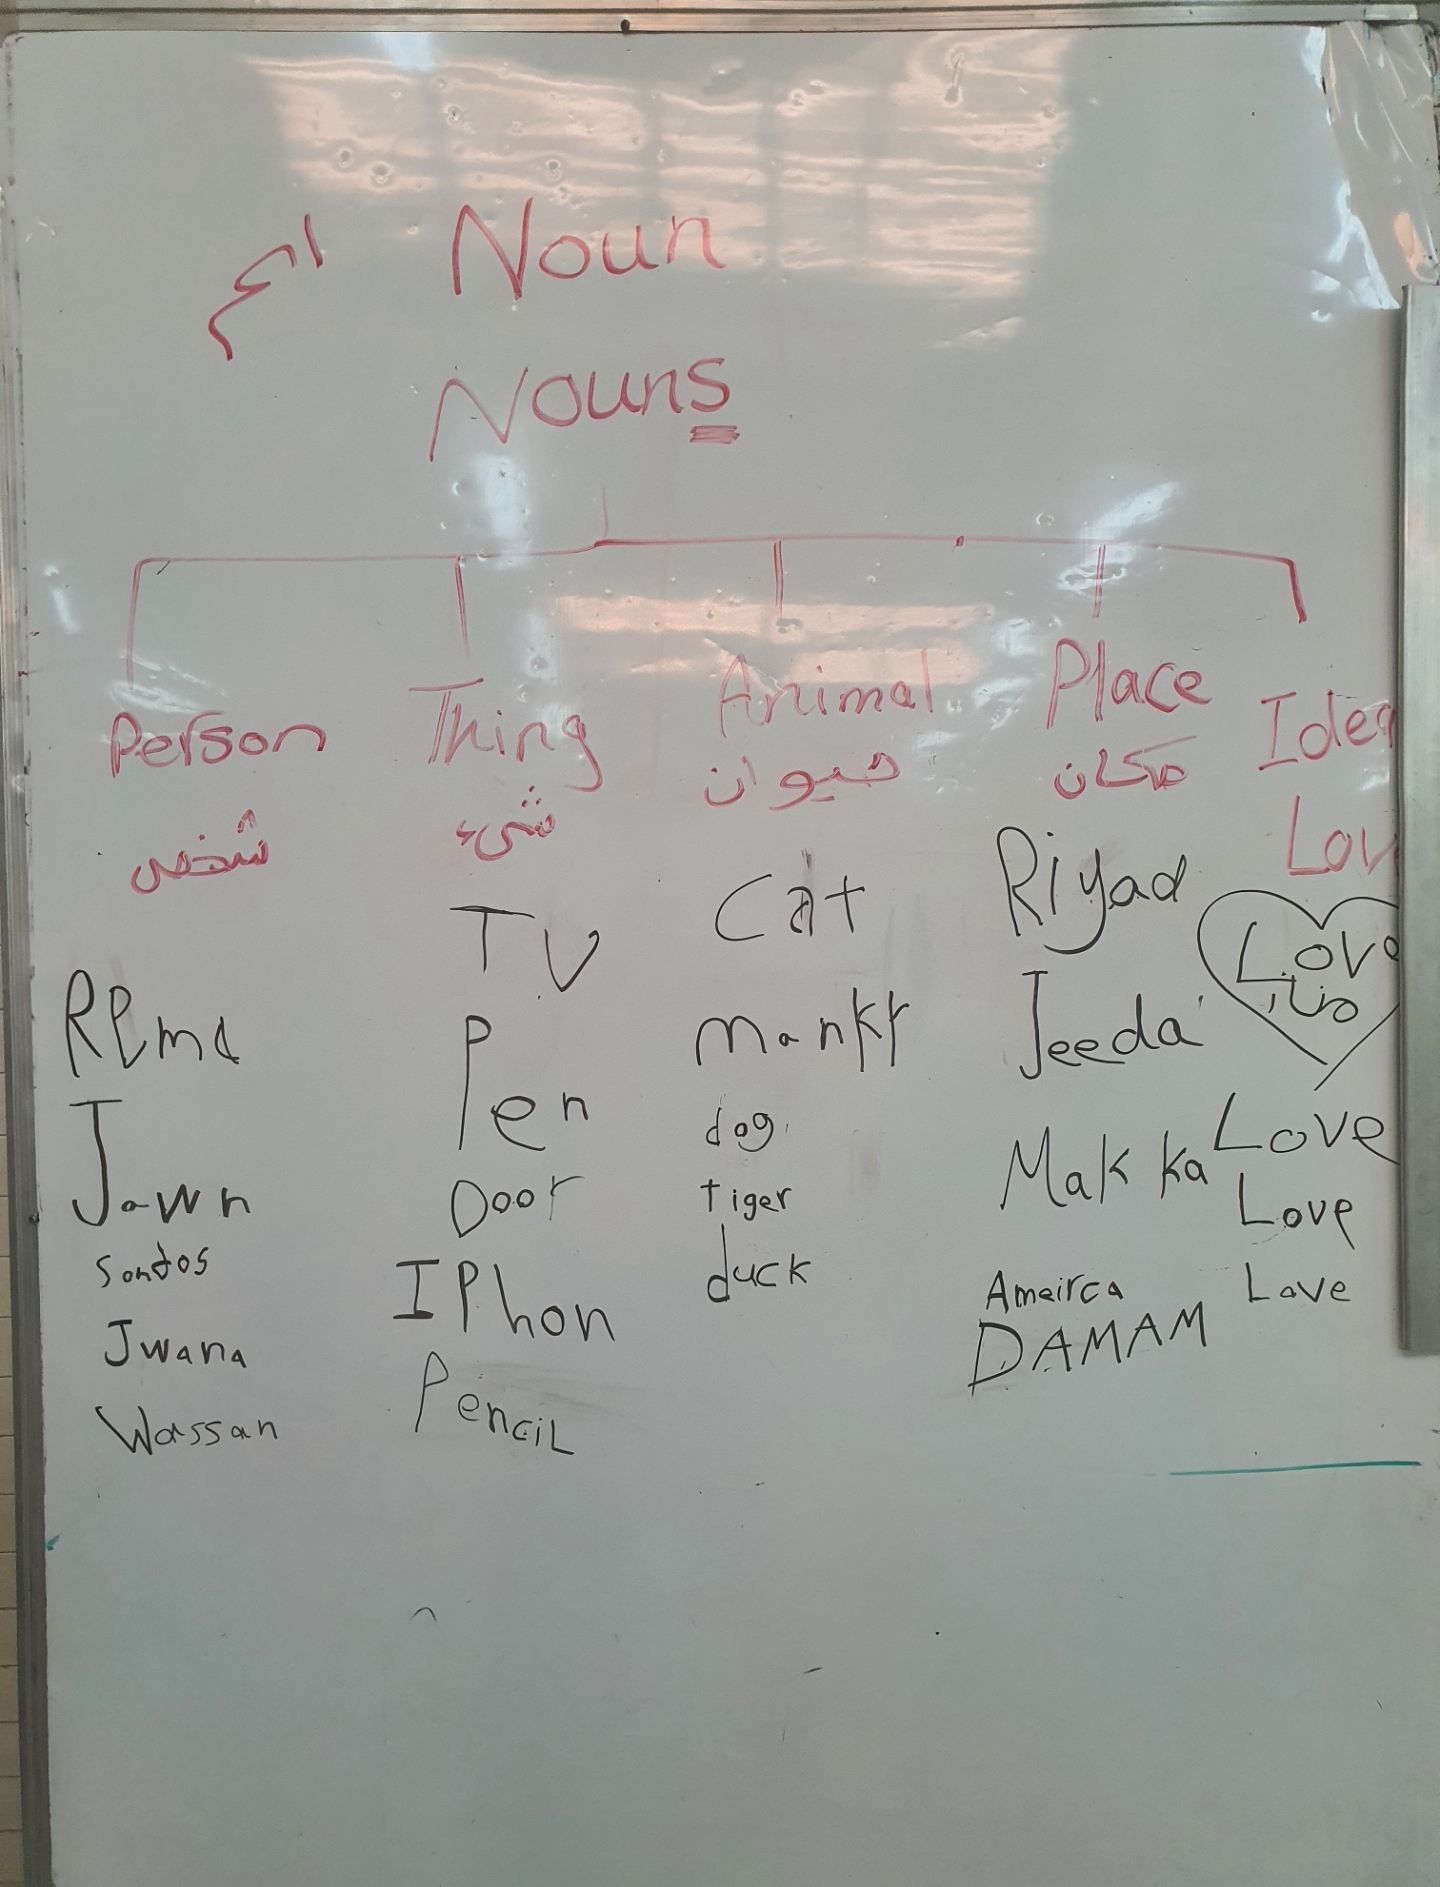 Noun اسم
Nouns
Person
شخص
Rema
Jawn
Sondos
Jwana
Wassan
Thing
شيء
TV
Pen
Door
IPhon
Pencil
Animal
حيوان
Cat
manky
dog
tiger
duck
Place
مكان
Riyad
Jeeda
Makka
Ameirca
DAMAM
Idea
Lov
Love
Love
Love
Love